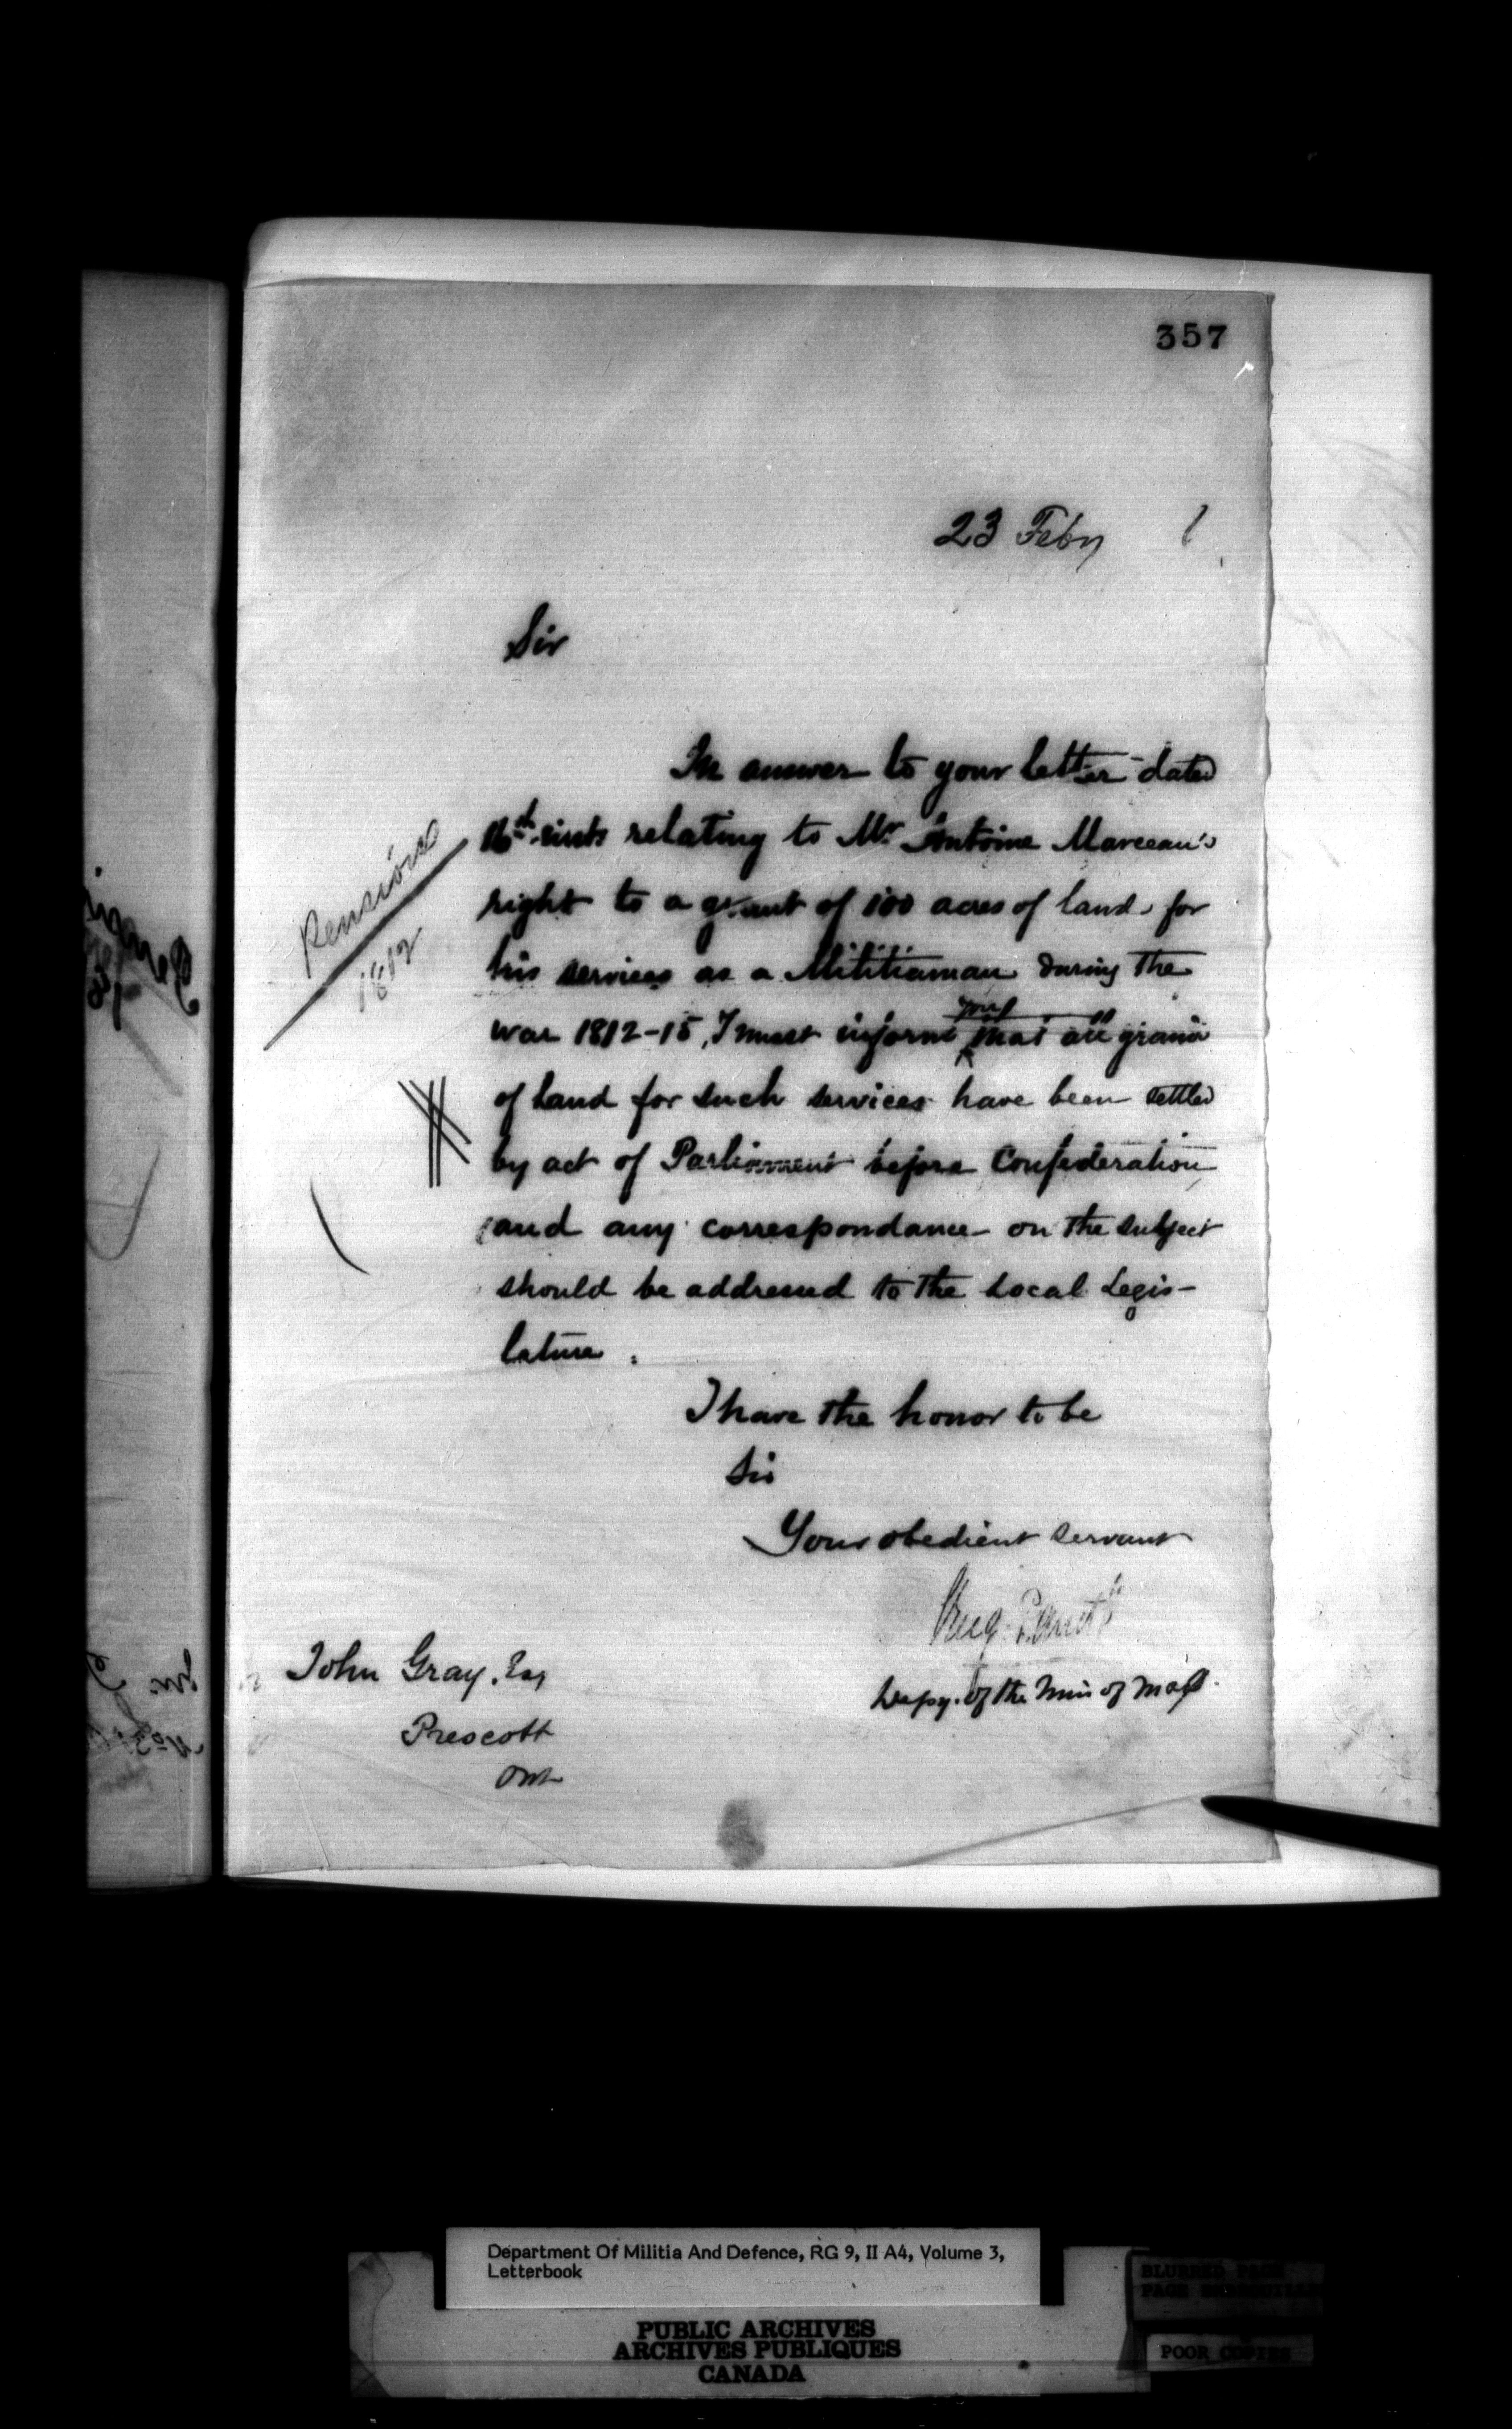 357
23 Feby 1
Sir
In answer to your letter dated
16th inst relating to Mr Antoine Marceau's
right to a grant of 100 acres of land for
his services as a Militiaman during the
war 1812-15, I must inform you that all grants
of land for such services have been settled
by act of Parliament before Confederation
and any correspondance on the subject
should be addressed to the Local Legis-
lature.
I have the honor to be
Sir
Your obedient servant
Depy. of the Min of
John Gray. Esq
Prescott
Ont
Pensions
1812
Department Of Militia And Defence, RG 9, II A4, Volume 3,
Letterbook
PUBLIC ARCHIVES
ARCHIVES PUBLIQUES
CANADA
BLURRED PAGE
POOR COPIES